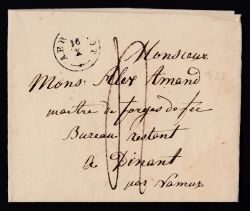 16
X
Monsieur
Mons: Alex Amand
maitre de forges de fer
Bureau restant
a Dinant
par Namur